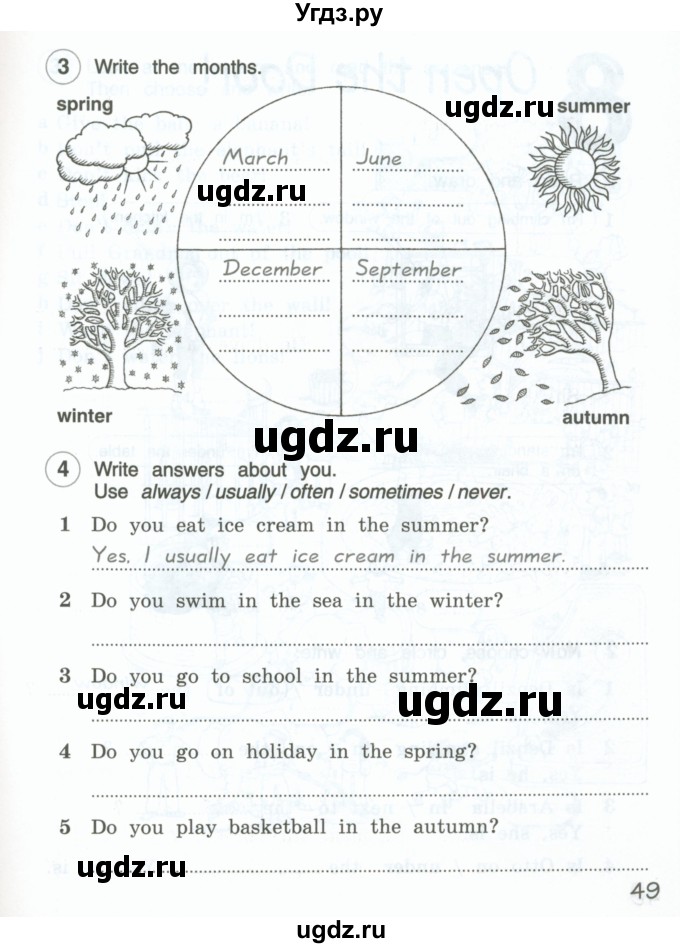 Угдз.ру
3 Write the months.
spring
summer
March
June
ugdz.ru
ugdz.ru
December
September
winter
autumn
ugdz.ru
4 Write answers about you.
Use always / usually / often / sometimes / never.
1 Do you eat ice cream in the summer?
Yes, I usually eat ice cream in the summer.
2 Do you swim in the sea in the winter?
3 Do you go to school in the summer?
ugdz.ru
ugdz.ru
4 Do you go on holiday in the spring?
5 Do you play basketball in the autumn?
ugdz.ru
49
ugdz.ru